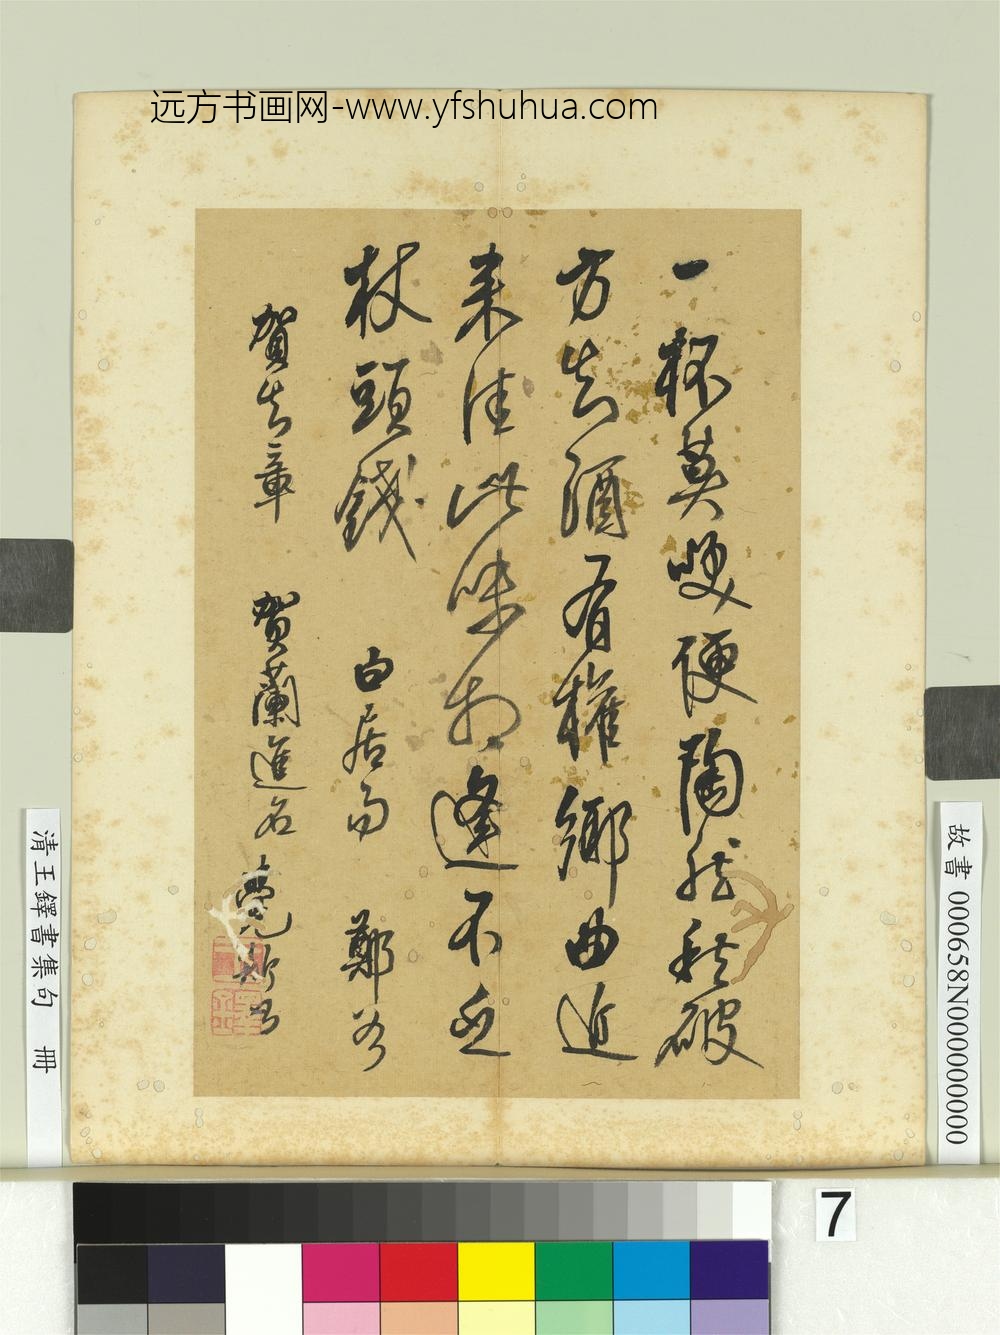 远方书画网-www.yfshuhua.com
一杯莫便陶然愁破
方知酒有權鄉曲近
來佳此味相逢不乏
杖頭錢 白居易 鄭谷
賀知章 賀蘭進名
清王鐸書集句 冊
故書 000658N000000000
7